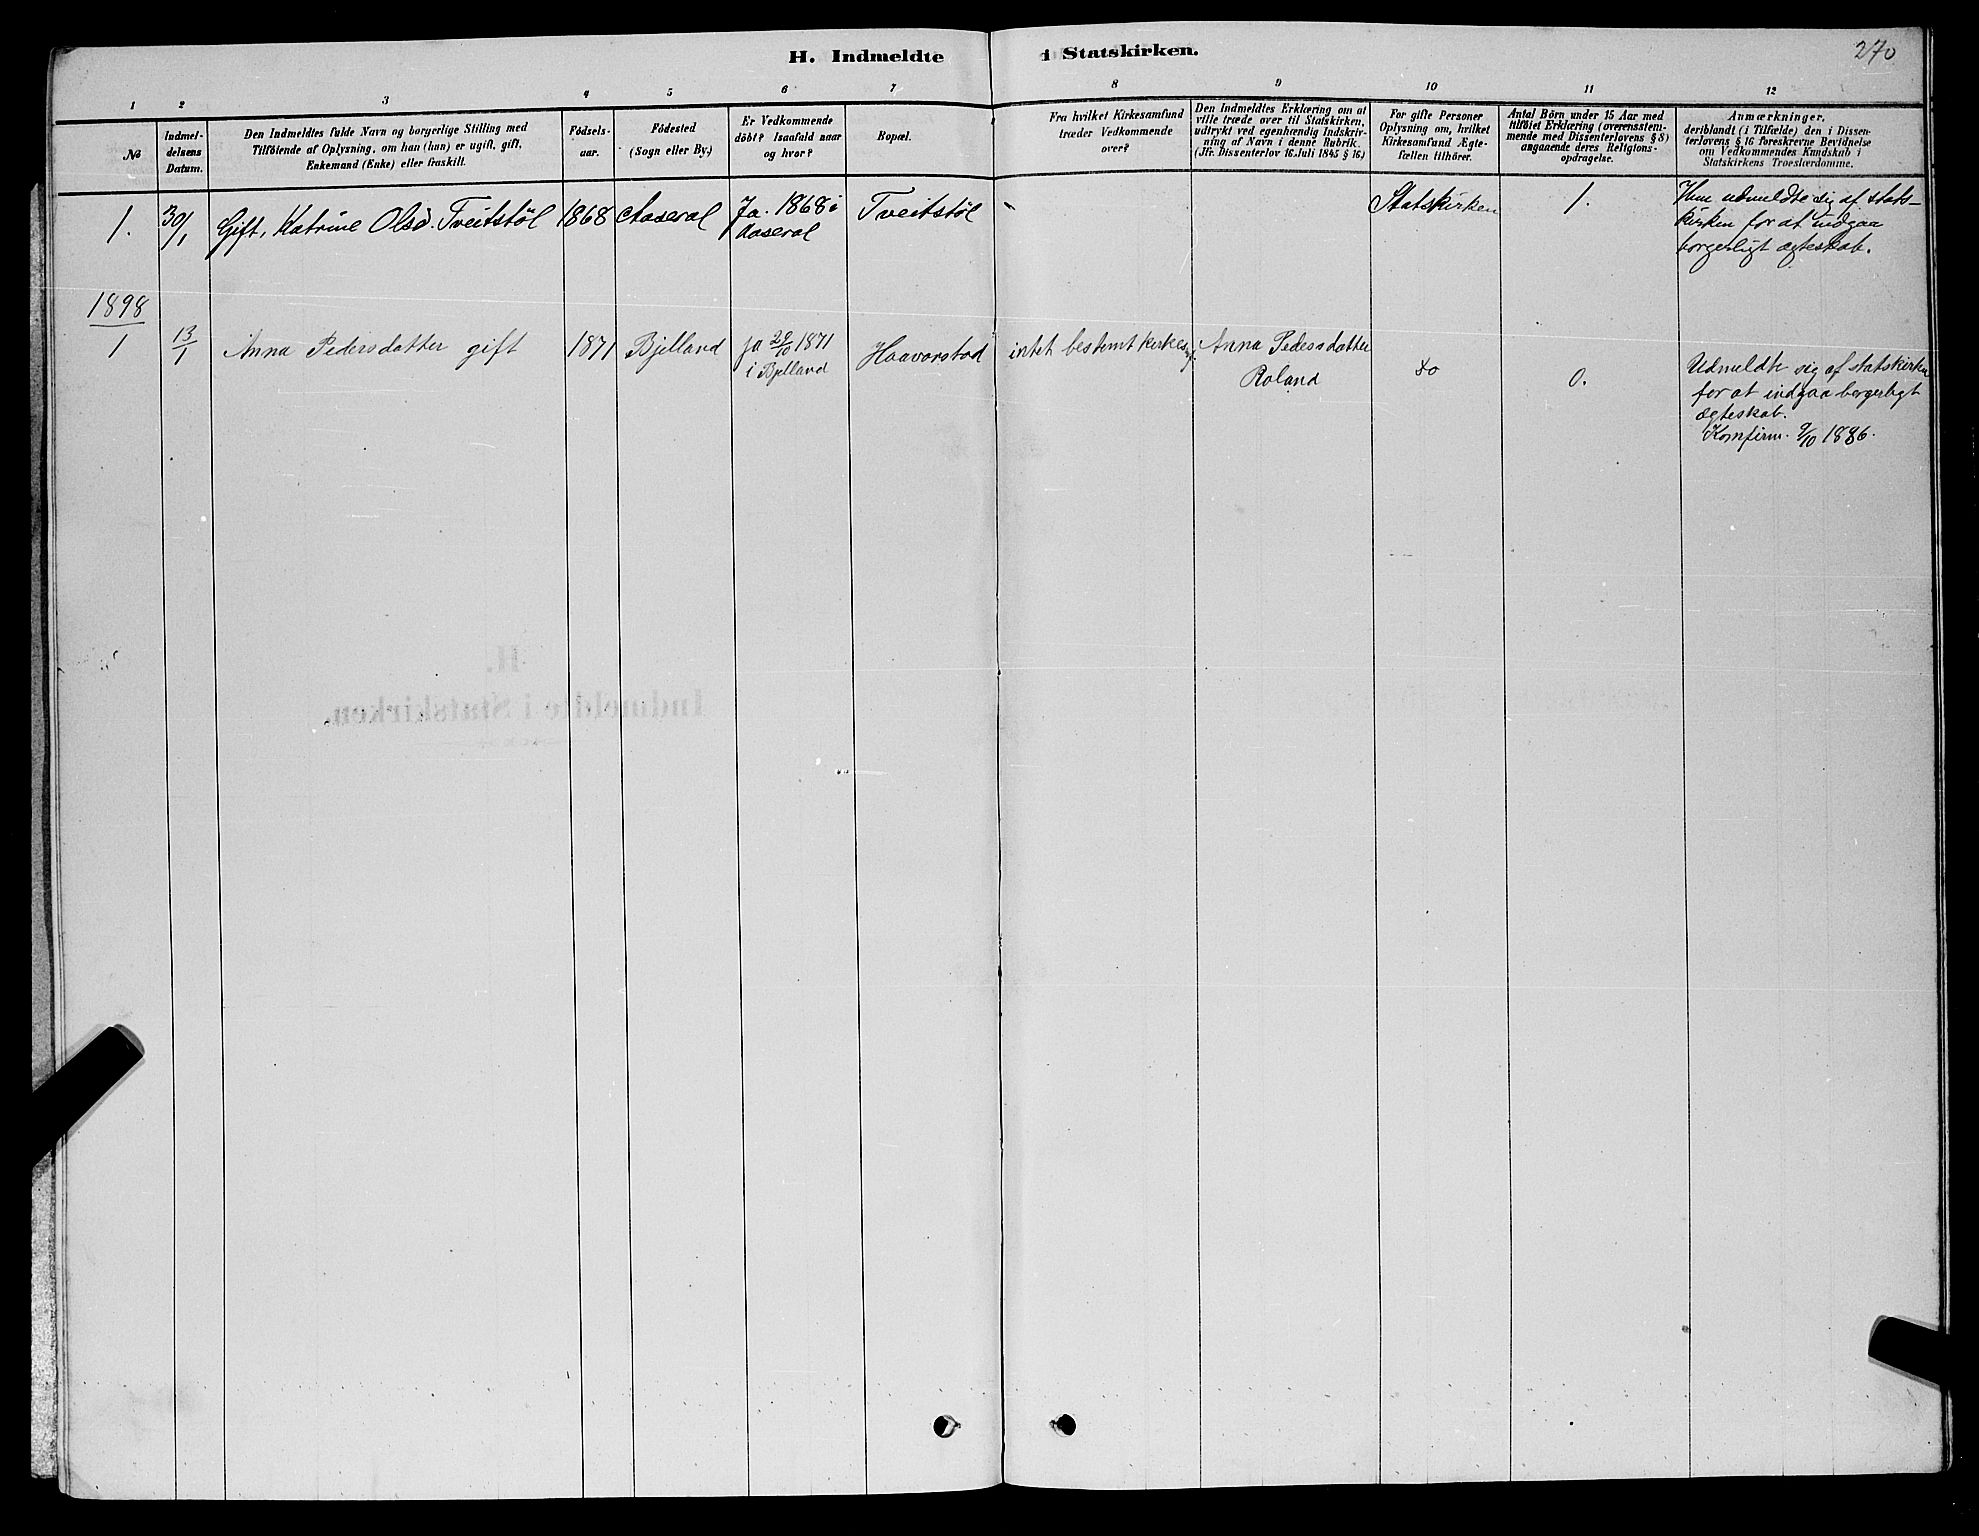 H. Indmeldte i Statskirken.
270
1 2 3 4 5 6 7 8 9 10 11 12
No
Indmel-
delsens
Datum.
Den Indmeldtes fulde Navn og borgerlige Stilling med
Tilföiende af Oplysning, om han (hun) er ugift, gift,
Enkemand (Enke) eller fraskilt.
Födsels-
aar.
Födested
(Sogn eller By.)
Er Vedkommende
döbt? Isaafald naar
og hvor?
Bopæl.
Fra hvilket Kirkesamfund
træder Vedkommende
over?
Den Indmeldtes Erklæring om at
ville træde over til Statskirken,
udtrykt ved egenhændig Indskriv-
ning af Navn i denne Rubrik.
(Jfr. Dissenterlov 16. Juli 1845 § 16.)
For gifte Personer
Oplysning om, hvilket
Kirkesamfund Ægte-
fællen tilhörer.
Antal Börn under 15 Aar med
tilföiet Erklæring (overensstem-
mende med Dissenterlovens § 8)
angaaende deres Religions-
opdragelse.
Anmærkninger,
deriblandt (i Tilfælde) den i Dissen-
terlovens § 16 foreskrevne Bevidnelse
om Vedkommendes Kundskab i
Statskirkens Troeslærdomme.
1.
30/1
Gift, Katrine Olsd. Tveitstöl
1868
Aaseral
Ja. 1868 i
Aaseral
Tveitstöl
Statskirken
1.
Hun udmeldte sig af stats-
kirken for at indgaa
borgerligt ægteskab.
1898
1
13/1
Anna Pedersdatter gift
1871
Bjelland
ja 29/10 1871
i Bjelland
Haavorstad
intet bestemt kirkes.
Anna Pedersdatter
Roland
do
0.
Udmeldte sig af statskirken
for at indgaa borgerligt
ægteskab.
Konfirm. 9/10 1886.
H.
Indmeldte i Statskirken.